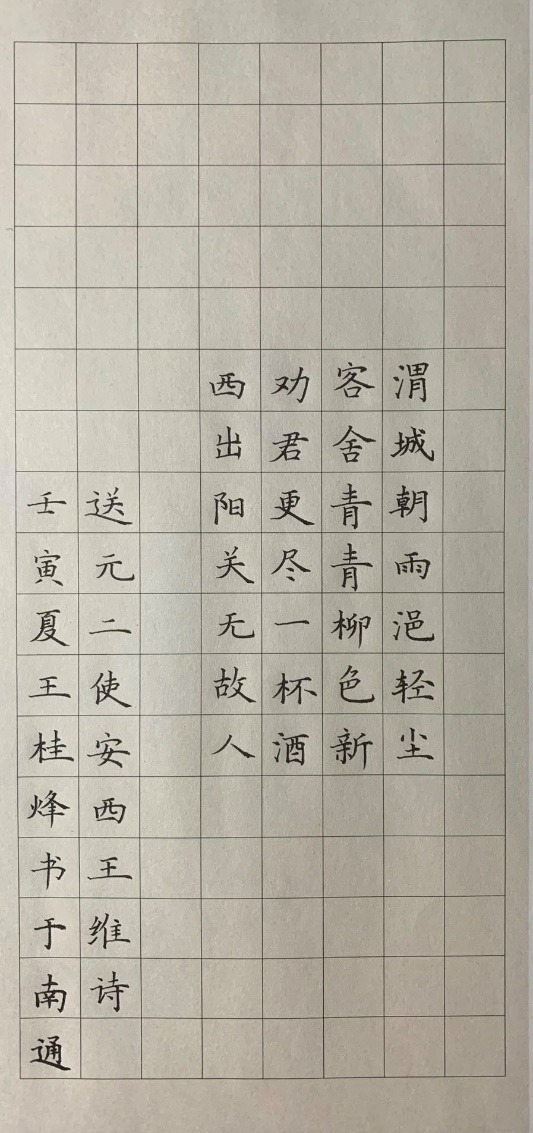 渭城朝雨浥轻尘
客舍青青柳色新
劝君更尽一杯酒
西出阳关无故人
送元二使安西王维诗
壬寅夏王桂烽书于南通